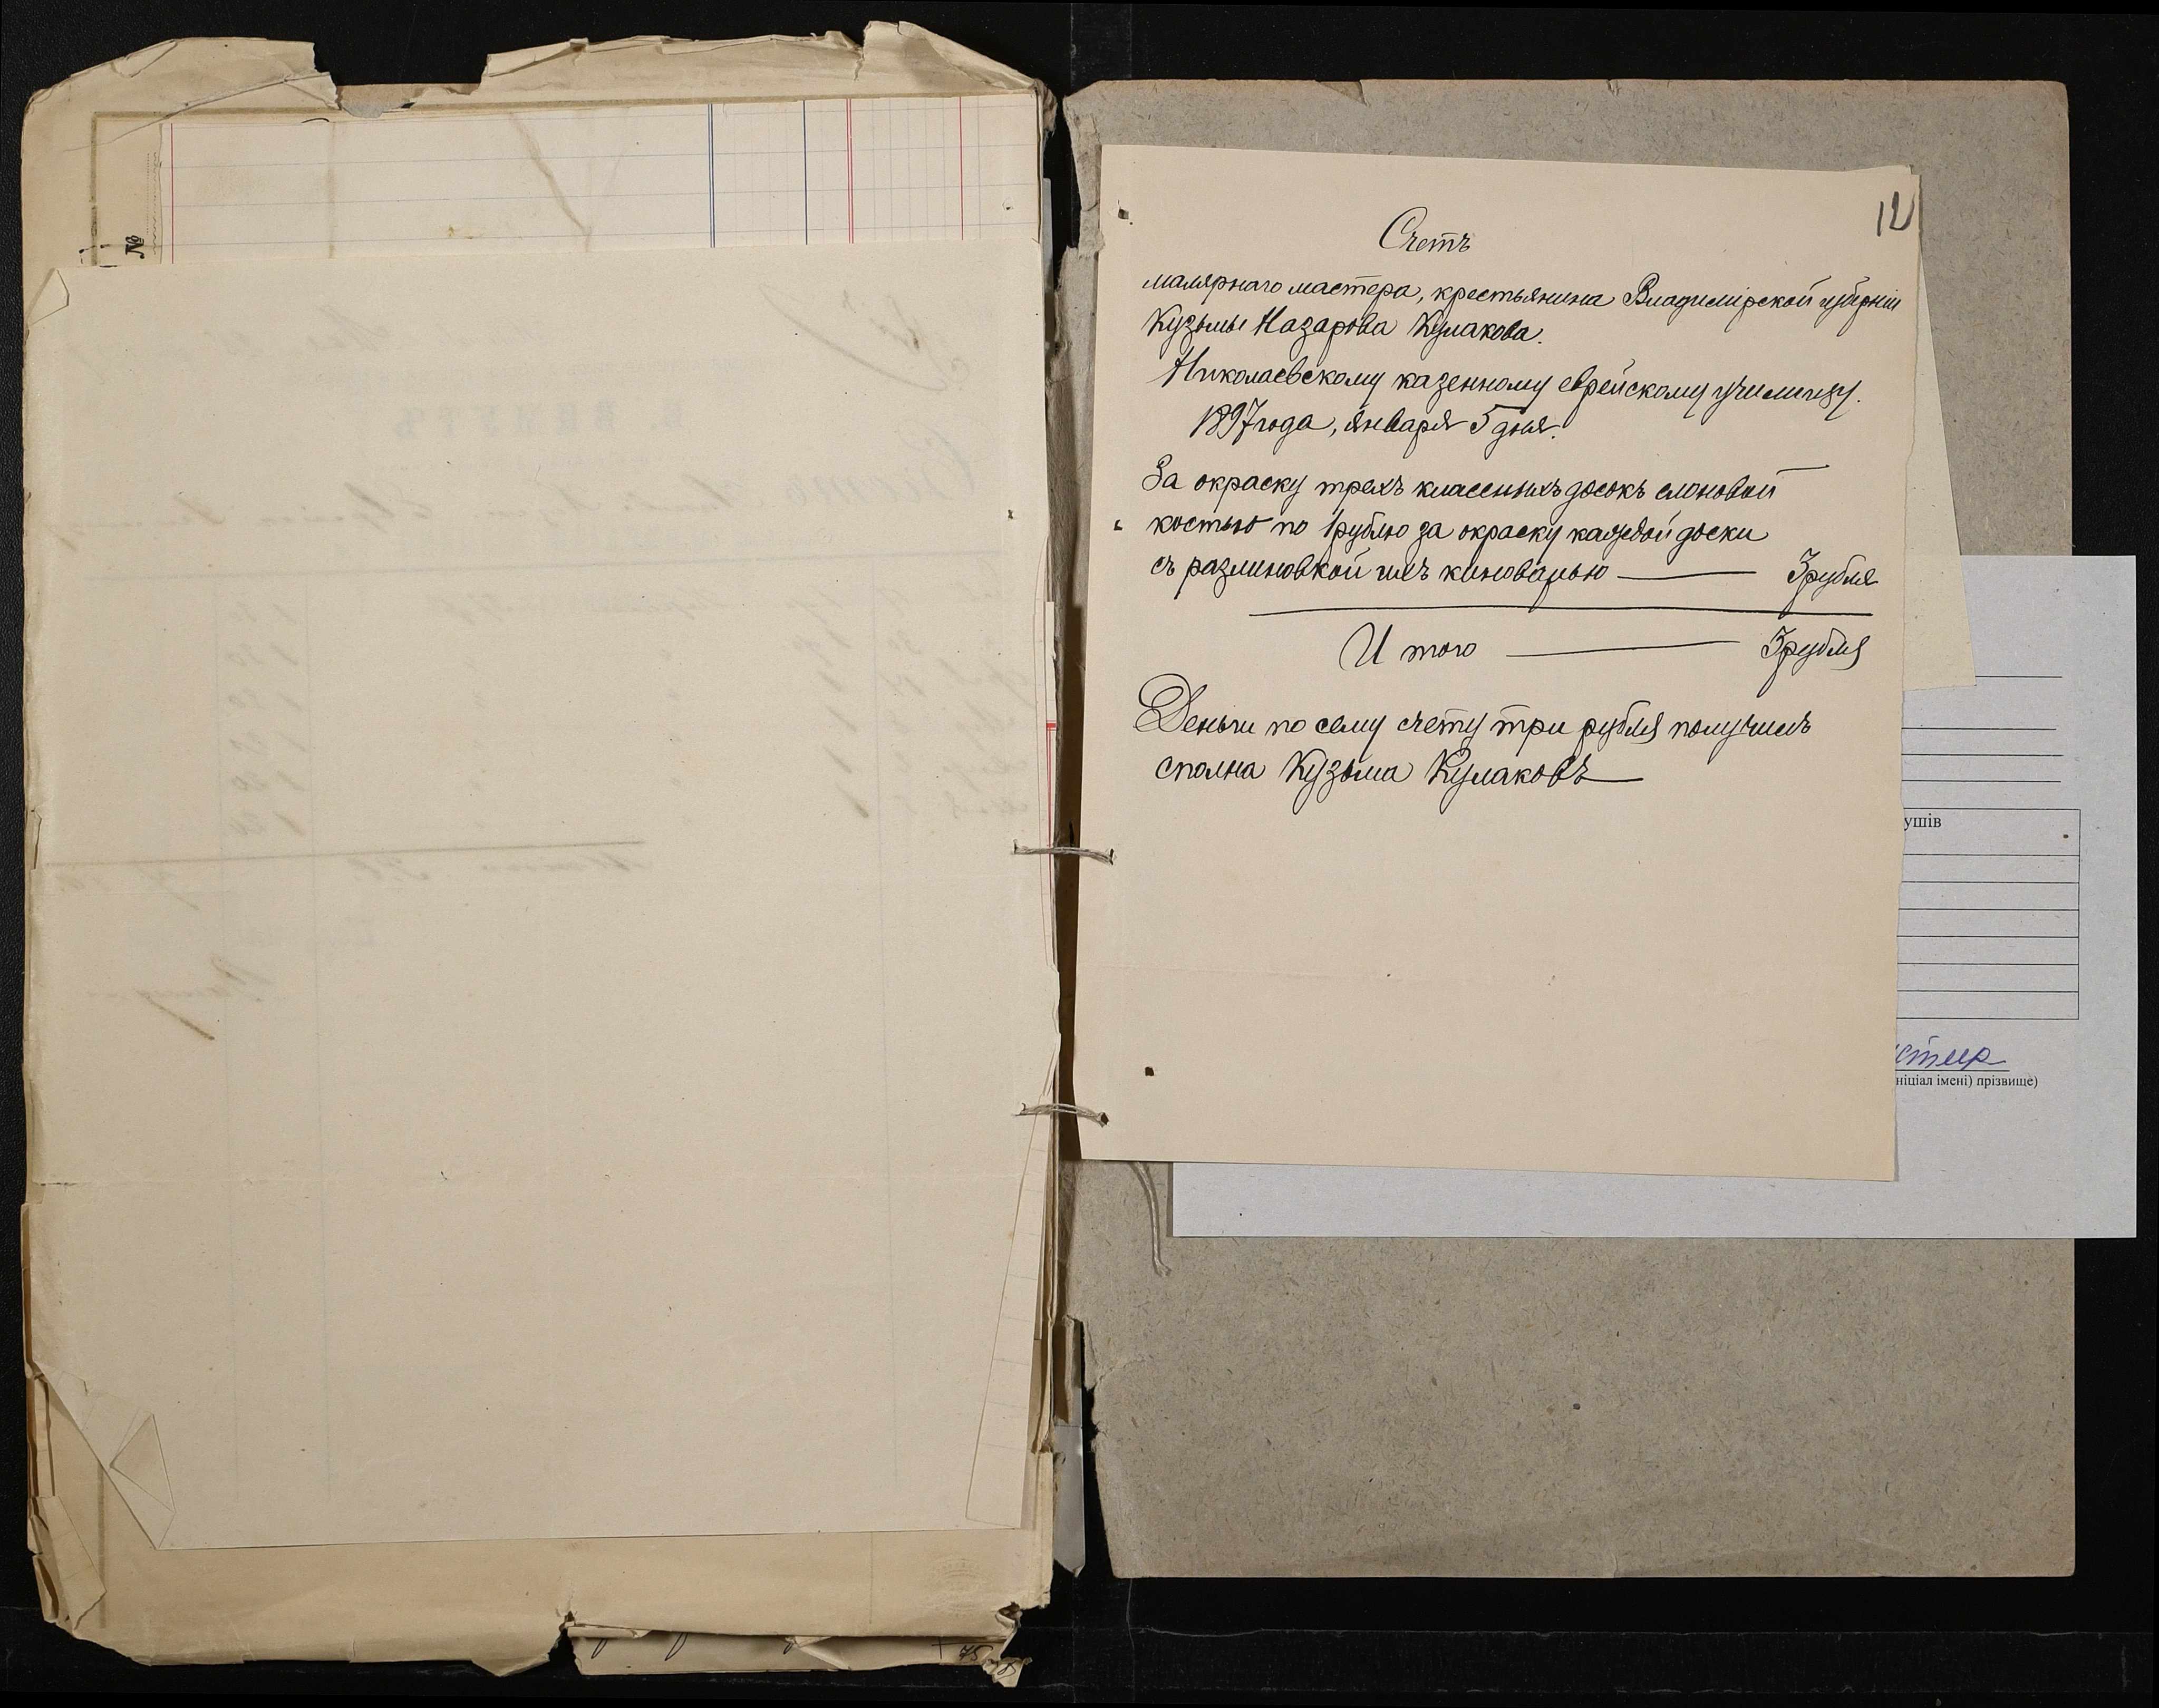 №
12
Счетъ
малярнаго мастера, крестьянина Владимірской губерніи
Кузьмы Назарова Кулакова.
Николаевскому казенному еврейскому училищу.
1897 года, января 5 дня.
За окраску трехъ классныхъ досокъ слоновой
костью по 1 рублю за окраску каждой доски
съ разлиновкой ихъ киноварью — 3 рубля
И того — 3 рубля
Деньги по сему счету три рубля получилъ
сполна Кузьма Кулаковъ
ушів
ніціал імені) прізвище)